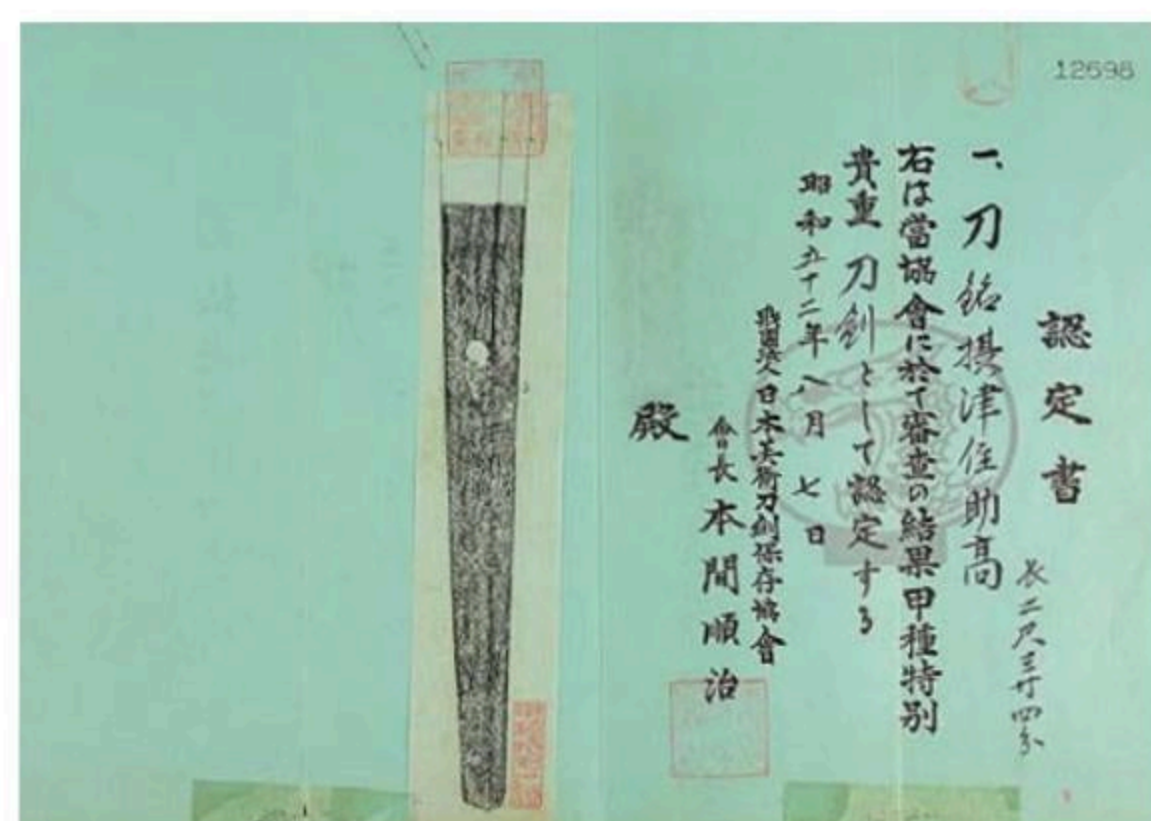 12698
認定書
一、刀 銘摂津住助高
長二尺三寸四分
右は當協會に於て審査の結果甲種特別
貴重刀剣として認定する
昭和五十二年八月七日
財団法人日本美術刀剣保存協會
會長本間順治
殿